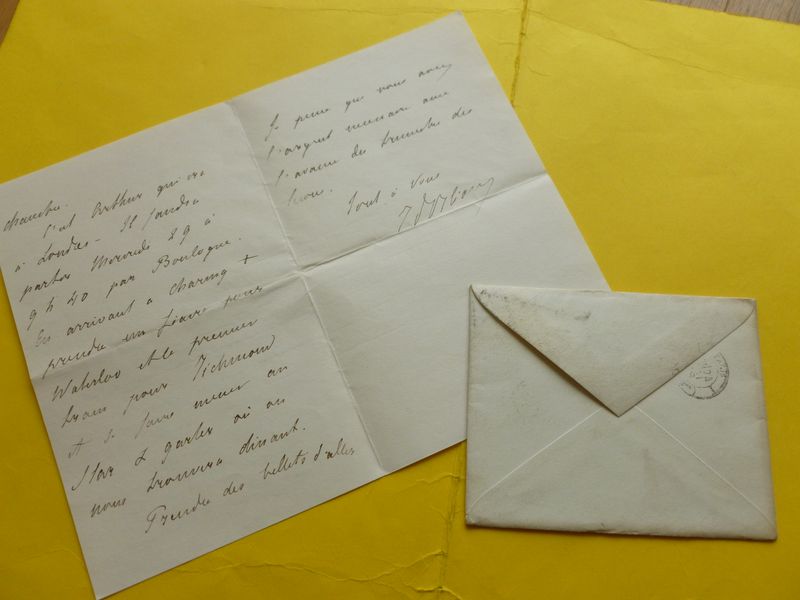 chambre.
C'est Arthur qui est
à Londres - Il faudra
partir Mercredi 29 à
9 h 40 par Boulogne.
En arrivant à Charing +
prendre un fiacre pour
Waterloo et le premier
train pour Richmond
et se faire mener au
Star & garter où on
nous trouvera dinant.
Prendre des billets d'aller
Je pense que vous avez
l'argent nécessaire avec
l'avance du trimestre des
Tout à vous